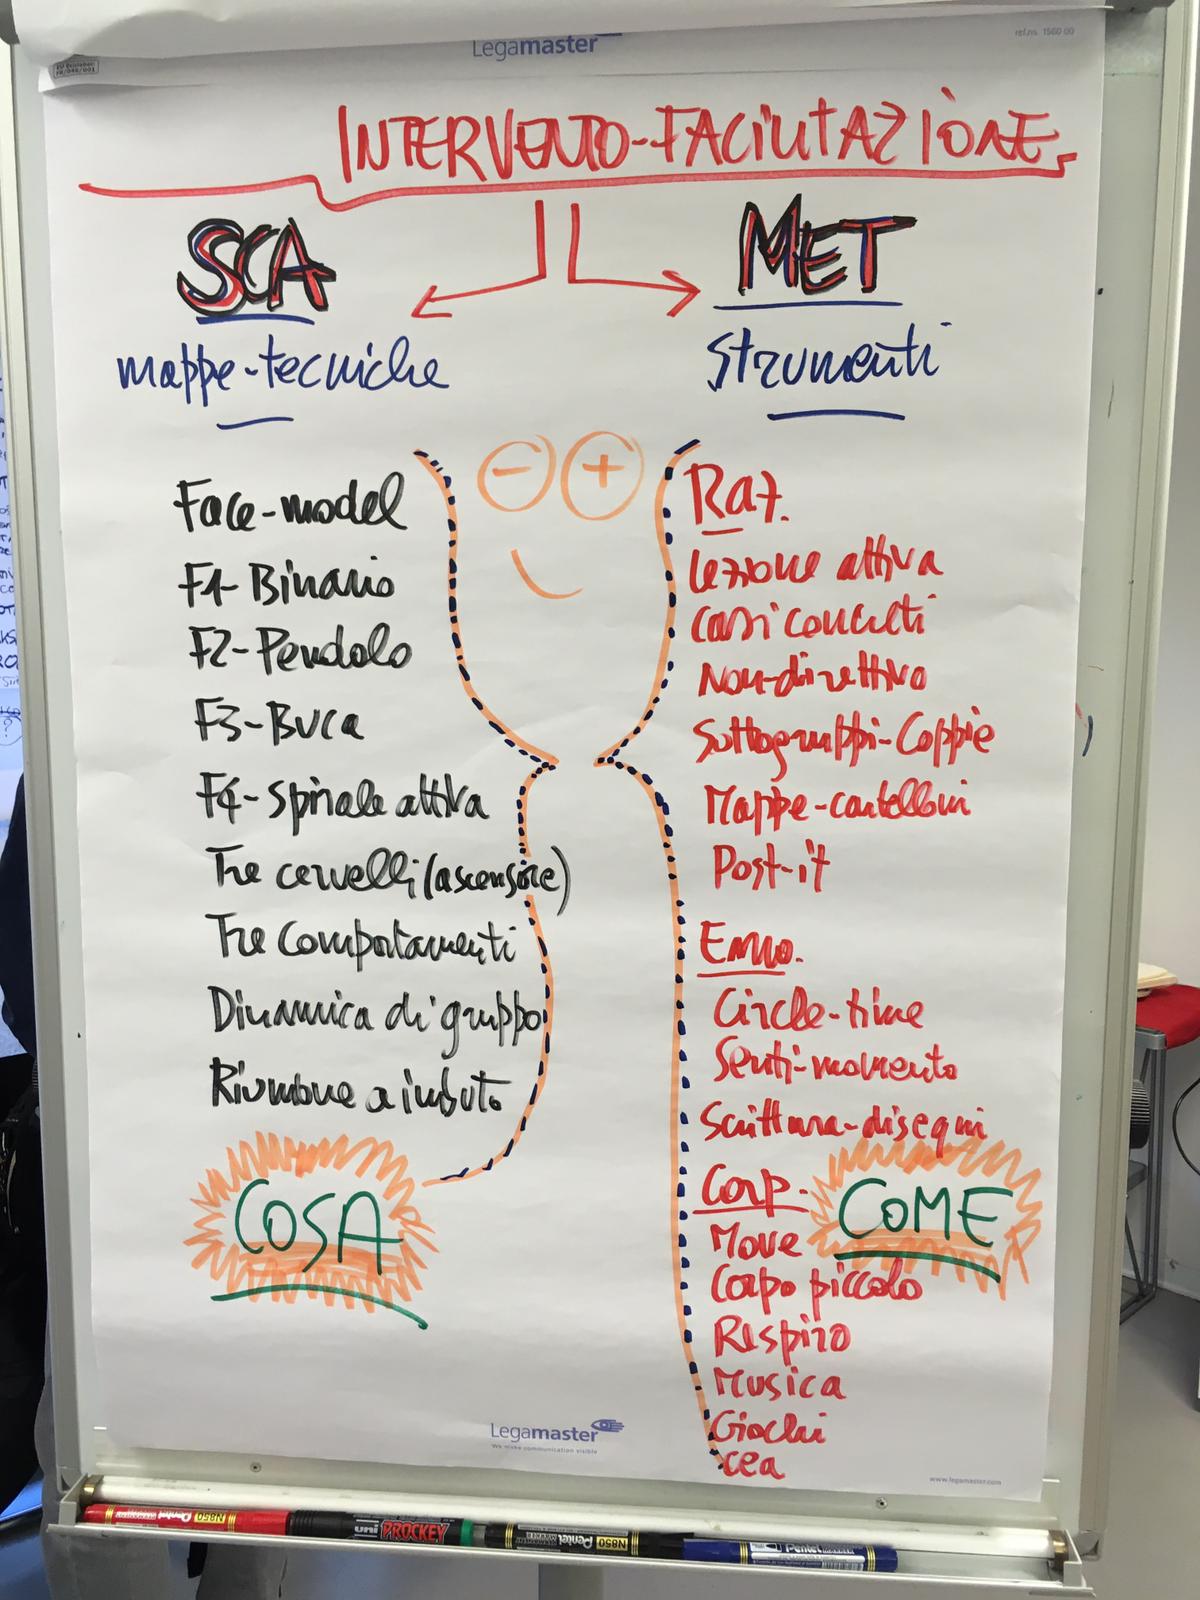 Legamaster
ref.nr. 1560 00
INTERVENTO-FACILITAZIONE
SCA
mappe-tecniche
MET
strumenti
Face-model
F1-Binario
F2-Pendolo
F3-Buca
F4-spirale attiva
Tre cervelli (ascensore)
Tre comportamenti
Dinamica di gruppo
Riunione a imbuto
COSA
- +
Raz.
Lezione attiva
Casi concreti
Non-direttivo
Sottogruppi-Coppie
Mappe-cartelloni
Post-it
Emo.
Circle-time
Senti-momento
Scrittura-disegni
Corp.
Move
Corpo piccolo
Respiro
Musica
Giochi
cea
COME
Legamaster
We make communication visible
www.legamaster.com
Pentel N850
uni PROCKEY
Pentel N850
Pentel